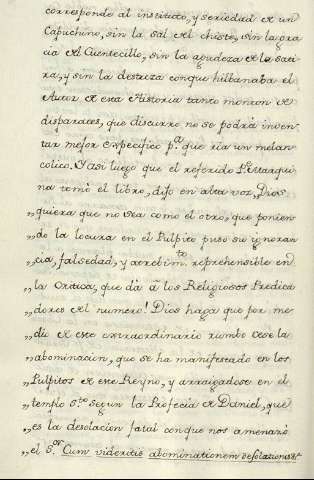 corresponde al instituto, y seriedad de un
Capuchino, sin la sal del chiste, sin la gra
cia del Cuentecillo, sin la agudeza de la sati
ra, y sin la destreza conque hilbanaba el
Autor de esta Historia tanto monton de
disparates, que discurro no se podrà inven
tar mejor especifico p.ª que ria un melan
colico. Y asi luego que el referido P.
na tomò el libro, dijo en alta voz, Dios
„quiera que no sea como el otro, que ponien
„do la locura en el Pulpito puso su ignoran
„cia, falsedad, y reprehensible en
„la Critica, que dà à los Religiosos Predica
„dores del numero! Dios haga que por me
„dio de este extraordinario rumbo cese la
„abominacion, que se ha manifestado en los
„Pulpitos de este Reyno, y arraigadose en el
„templo S.to segun la Profecia de Daniel, que
„es la desolacion fatal conque nos amenazò
„el S.or Cum videritis abominationem desolationis &.ª